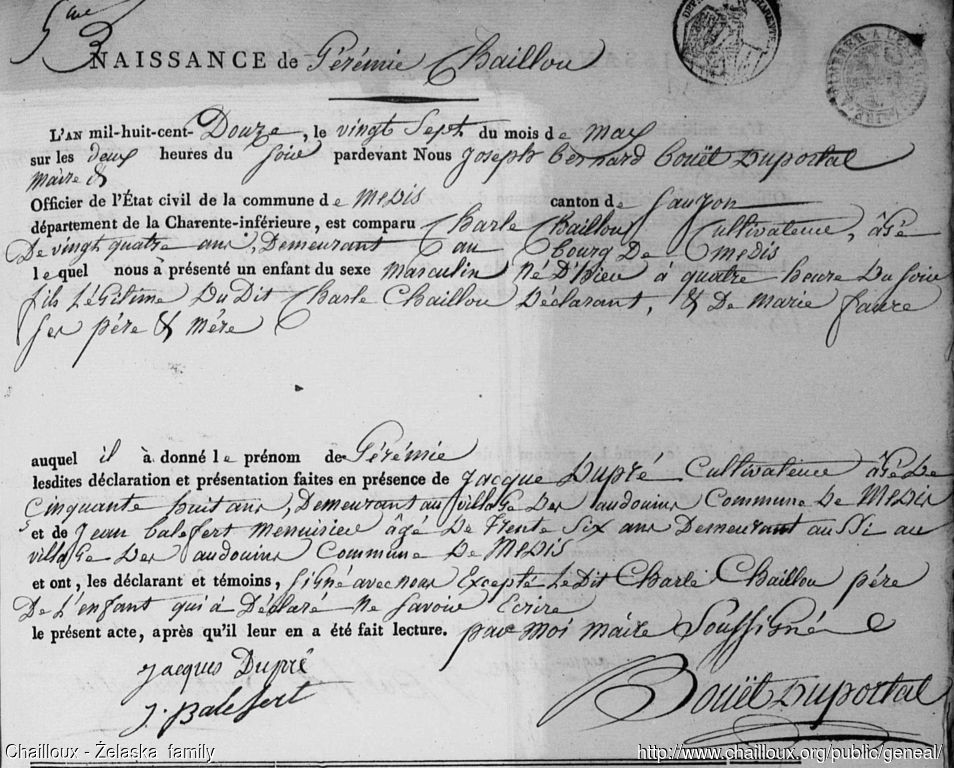 5me
NAISSANCE de Gérémie Chaillou
L'AN mil-huit-cent-Douze, le vingt Sept du mois de may
sur les deux heures du soir pardevant Nous Joseph Bernard Bouët Duportal
maire &
Officier de l'État civil de la commune de Medis canton de Saujon
département de la Charente-inférieure, est comparu Charle Chaillou Cultivateur, âgé
De vingt quatre ans, Demeurant au bourg De medis
lequel nous à présenté un enfant du sexe masculin Né D'hier à quatre heure Du Soir
fils Légitime Du Dit Charle Chaillou Déclarant, & De Marie faure
Ses pére & Mére
auquel il à donné le prénom de Gérémie
lesdites déclaration et présentation faites en présence de Jacque Dupré Cultivateur âgé De
Cinquante huit ans, Demeurant au village Des audouins Commune De Medis
et de Jean Balefort Menuisier âgé De trente Six ans Demeurant aussi au
village Des audouins Commune De Medis
et ont, les déclarant et témoins, Signé avec nous Excepté Le Dit Charle Chaillou pére
De L'enfant qui à Déclaré Ne Savoir Ecrire
le présent acte, après qu'il leur en a été fait lecture. par Moi maire Soussigné
Jacques Dupré
J. Balefort
Bouët Duportal
Chailloux - Żelaska family
http://www.chailloux.org/public/geneal/